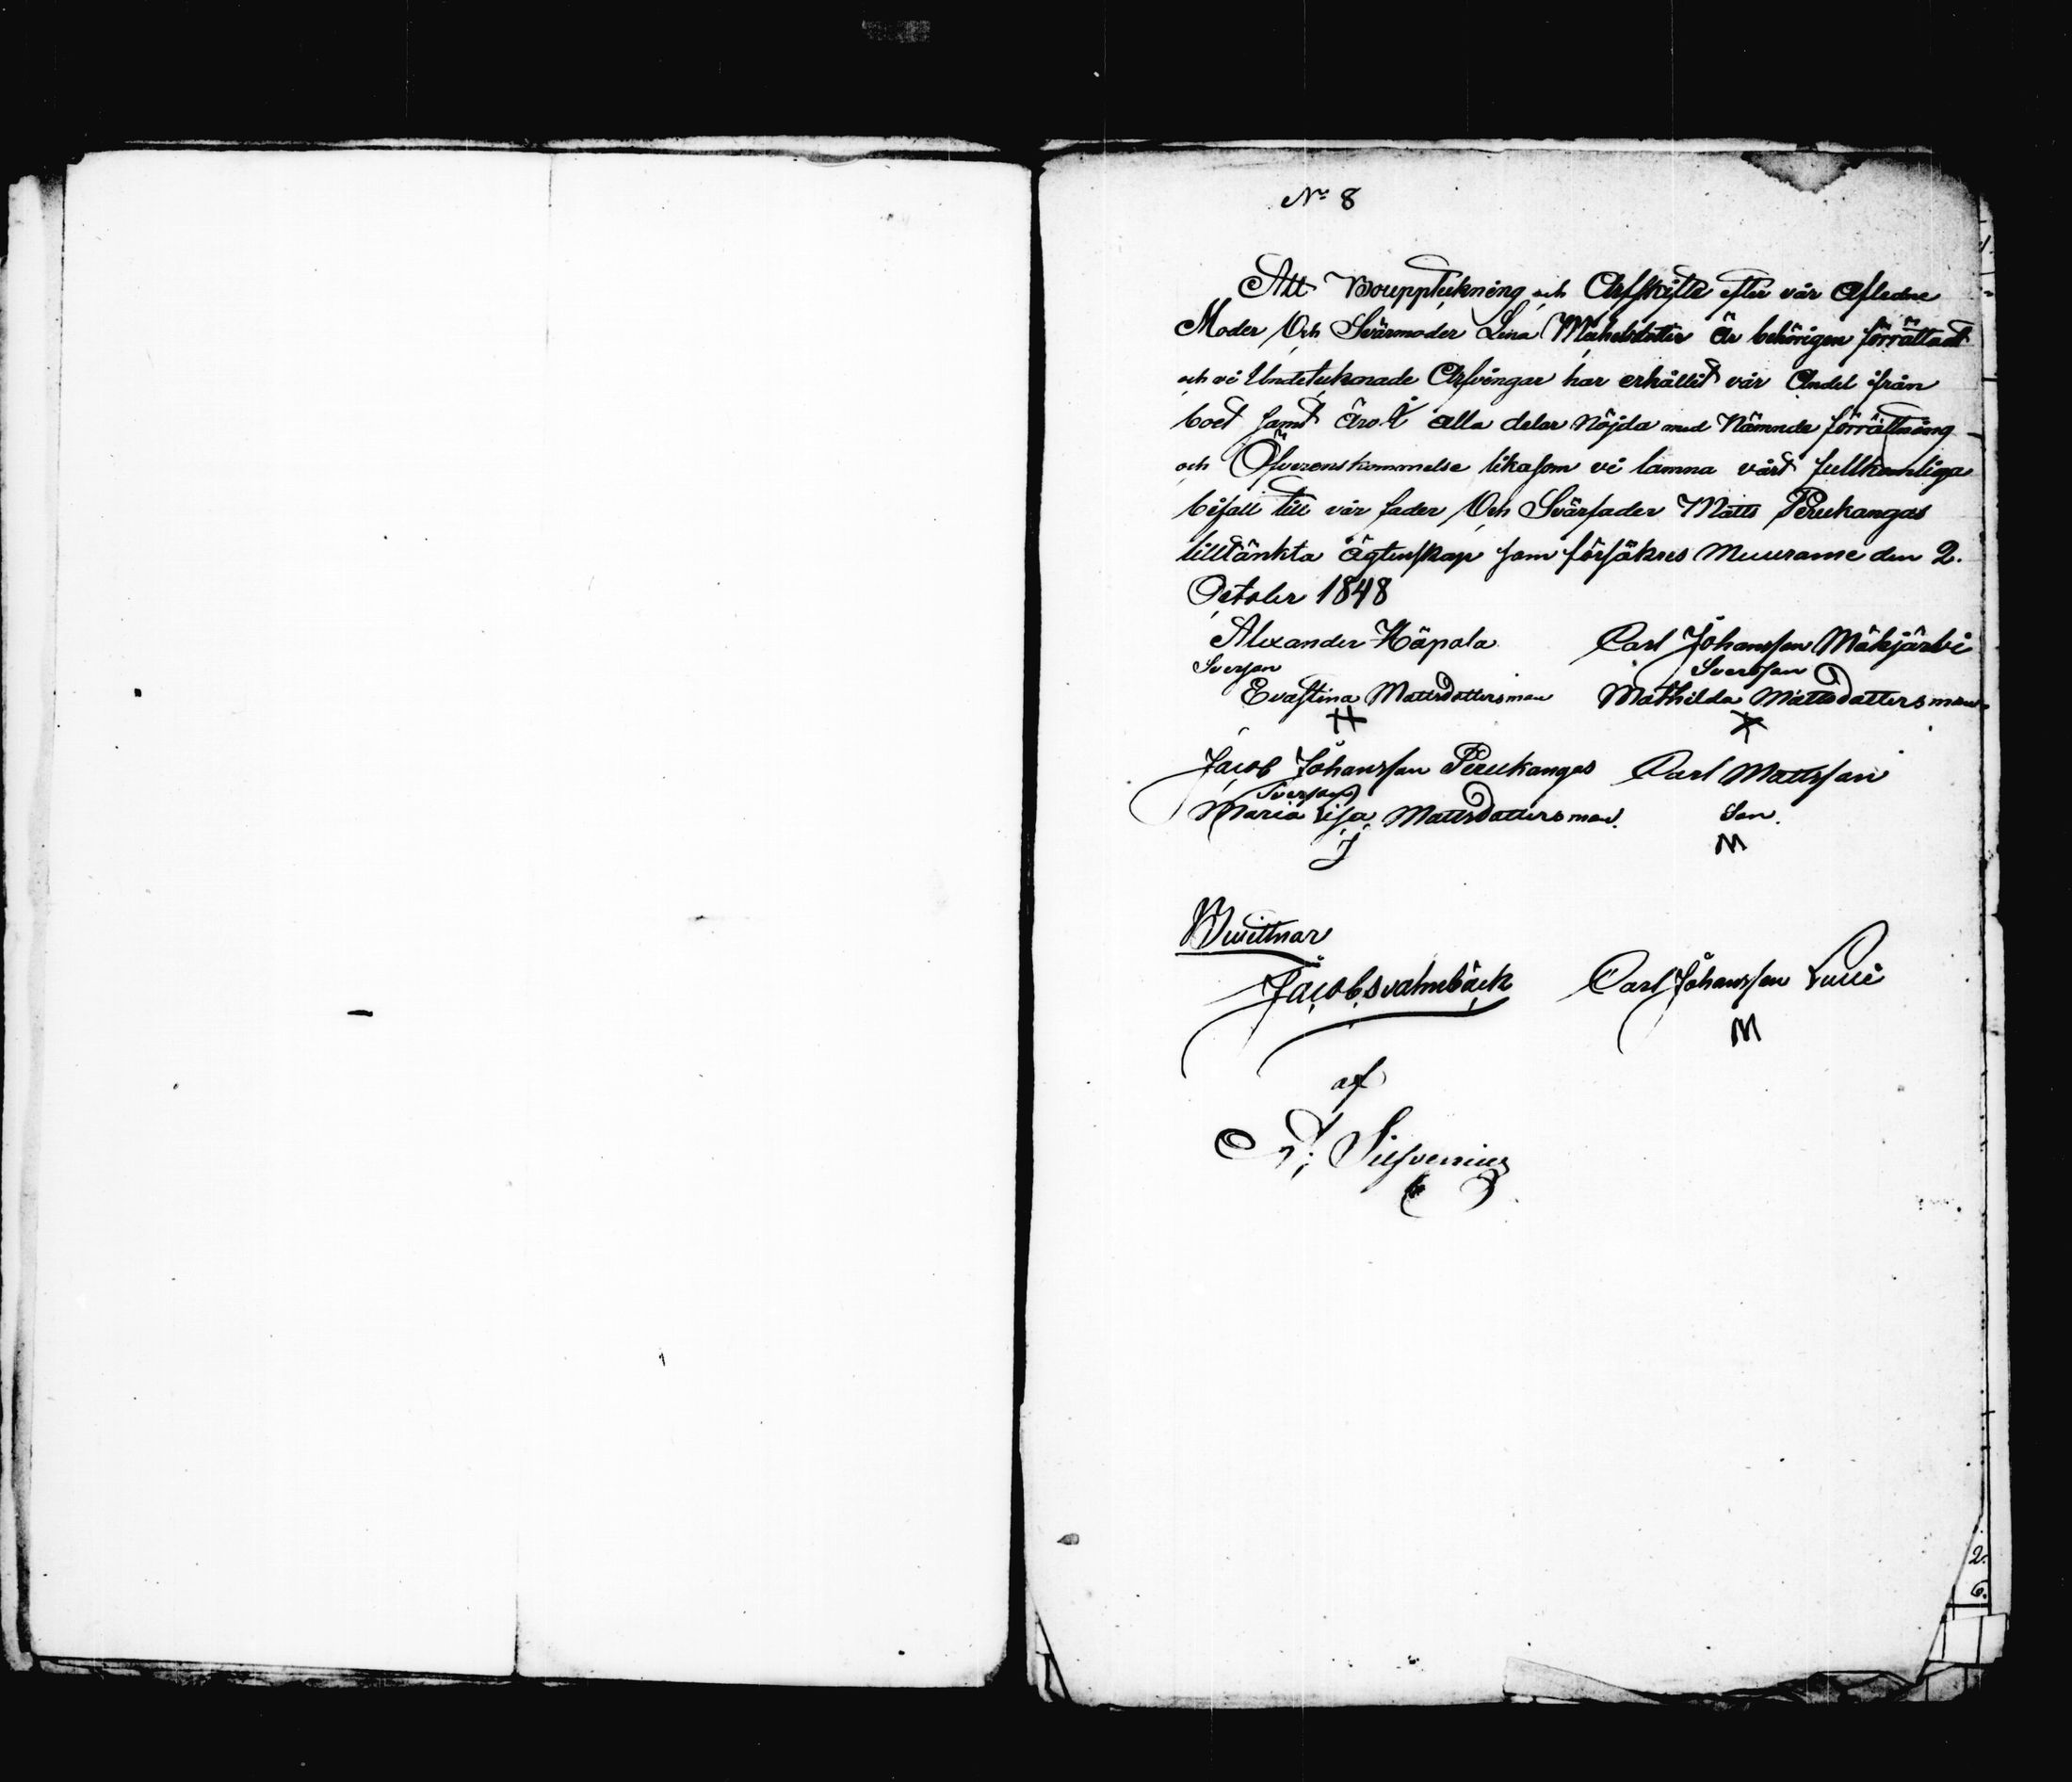 No 8
Att Bouppteckning och Arfskifte efter vår Afledne
Moder Och Svärmoder Lena Michelsdotter Är behörigen förrättadt
och vi Undetecknade Arfvingar har erhållit vår Andel ifrån
boet samt äro I alla delar Nöjda med Nämnde förrättning
och Öfverenskommelse likasom vi lämna vårt fullkomliga
bifall till vår fader Och Svärfader Matts Perukangas
tilltänkta Ägtenskap som försäkres Muurame den 2.
October 1848
Alexander Käpola Carl Johansson Mäkjärvi
Sverson Sverson
Evastina Mattsdottersman Mathilda Mattsdottersman
Jacob Johansson Perukangas Carl Mattsson
Sverson
Maria Lisa Mattsdottersman. Son.
M
Bwittnar
Jacob Svahnbäck Carl Johansson
M
af